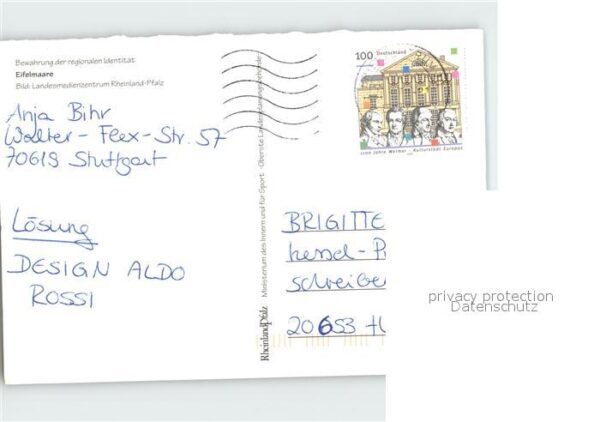 Bewahrung der regionalen Identität
Eifelmaare
Bild: Landesmedienzentrum Rheinland-Pfalz
Anja Bihr
Walter-Flex-Str. 57
70619 Stuttgart
Lösung
DESIGN ALDO
ROSSI
RheinlandPfalz
Ministerium des Innern und für Sport · Oberste Landesplanungsbehörde
100
Deutschland
1100 Jahre Weimar - Kulturstadt Europas
BRIGITTE
kessel-P
schreibe
20653 H
privacy protection
Datenschutz